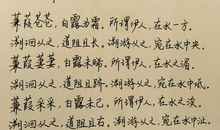 蒹葭苍苍，白露为霜。所谓伊人，在水一方。
溯洄从之，道阻且长。溯游从之，宛在水中央。
蒹葭萋萋，白露未晞。所谓伊人，在水之湄。
溯洄从之，道阻且跻。溯游从之，宛在水中坻。
蒹葭采采，白露未已。所谓伊人，在水之涘。
溯洄从之，道阻且右。溯游从之，宛在水中沚。